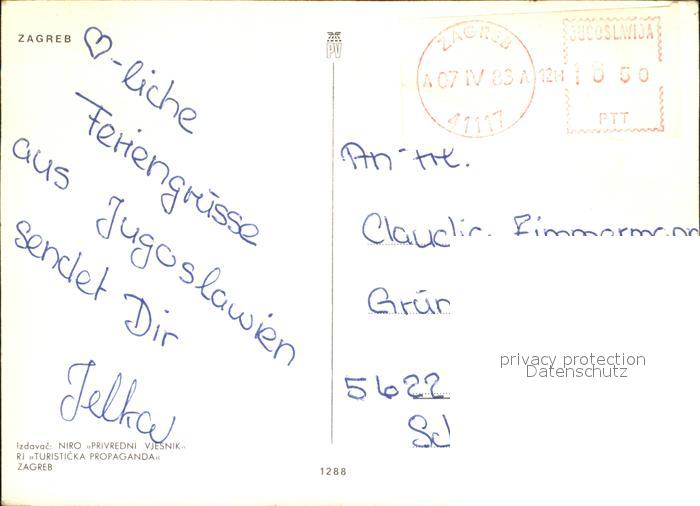 ZAGREB
♡-liche
Feriengrüsse
aus Jugoslawien
sendet Dir
Jelka
Izdavač: NIRO »PRIVREDNI VJESNIK«
RJ »TURISTIČKA PROPAGANDA«
ZAGREB
PV
1288
ZAGREB
A 07 IV 83 A 12H
41117
JUGOSLAVIJA
50
PTT
Claudia
5622
privacy protection
Datenschutz